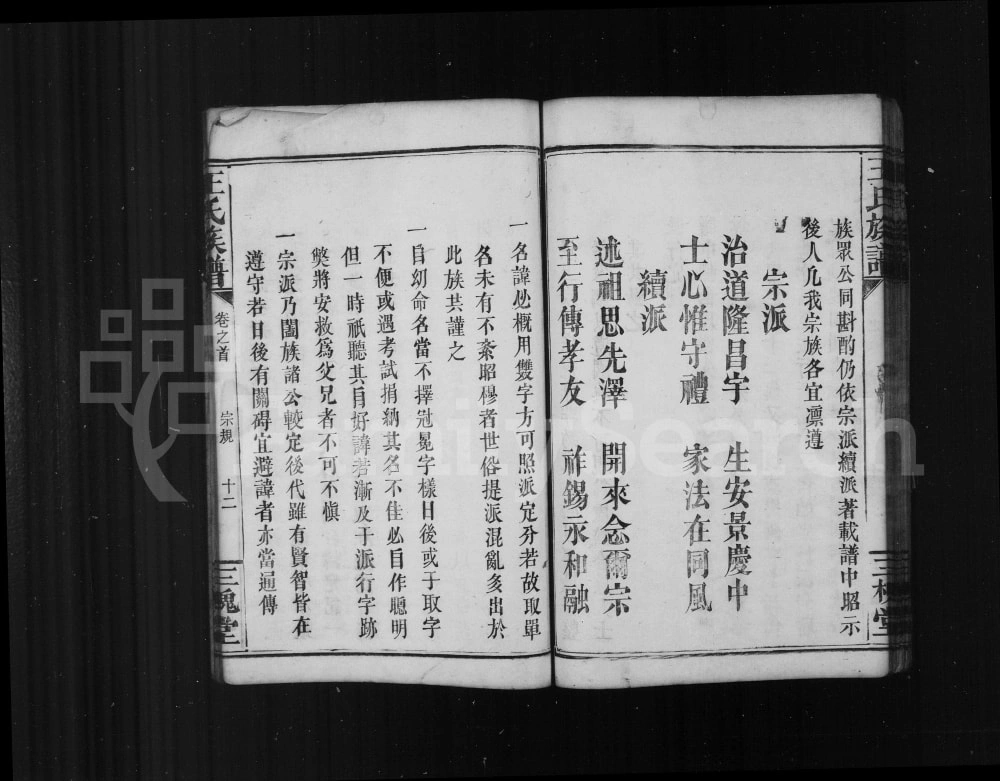 王氏族譜
三槐堂
族眾公同斟酌仍依宗派續派著載譜中昭示
後人凡我宗族各宜凛遵
宗派
治道隆昌宇 生安景慶中
士心惟守禮 家法在同風
續派
述祖思先澤 開來念爾宗
至行傳孝友 祚錫永和融
一名諱必概用雙字方可照派定分若故取單
名未有不紊昭穆者世俗提派混亂多出於
此族共謹之
一自幼命名當不擇冠冕字樣日後或于取字
不便或遇考試捐納其名不佳必自作聰明
但一時祇聽其自好諱若漸及于派行字跡
獘將安救為父兄者不可不慎
一宗派乃闔族諸公較定後代雖有賢智皆在
遵守若日後有關碍宜避諱者亦當通傳
王氏族譜
卷之首
宗規
十二
三槐堂
FamilySearch